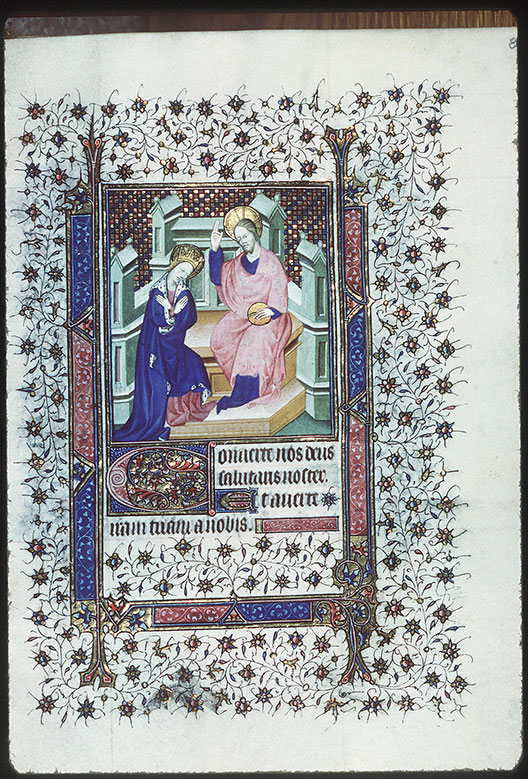 Conuerte nos deus
salutaris noster.
Et auerte
iram tuam a nobis.